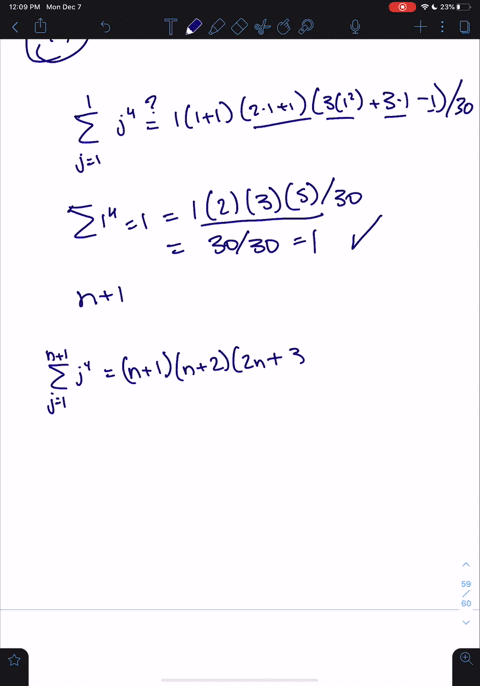 12:09 PM Mon Dec 7
23%
T
1
∑ j⁴ ≟ 1(1+1)(2·1+1)(3(1²)+3·1-1)/30
j=1
∑1⁴=1 = 1(2)(3)(5)/30
= 30/30 =1 ✓
n+1
n+1
∑ j⁴ = (n+1)(n+2)(2n+3
j=1
59
/
60